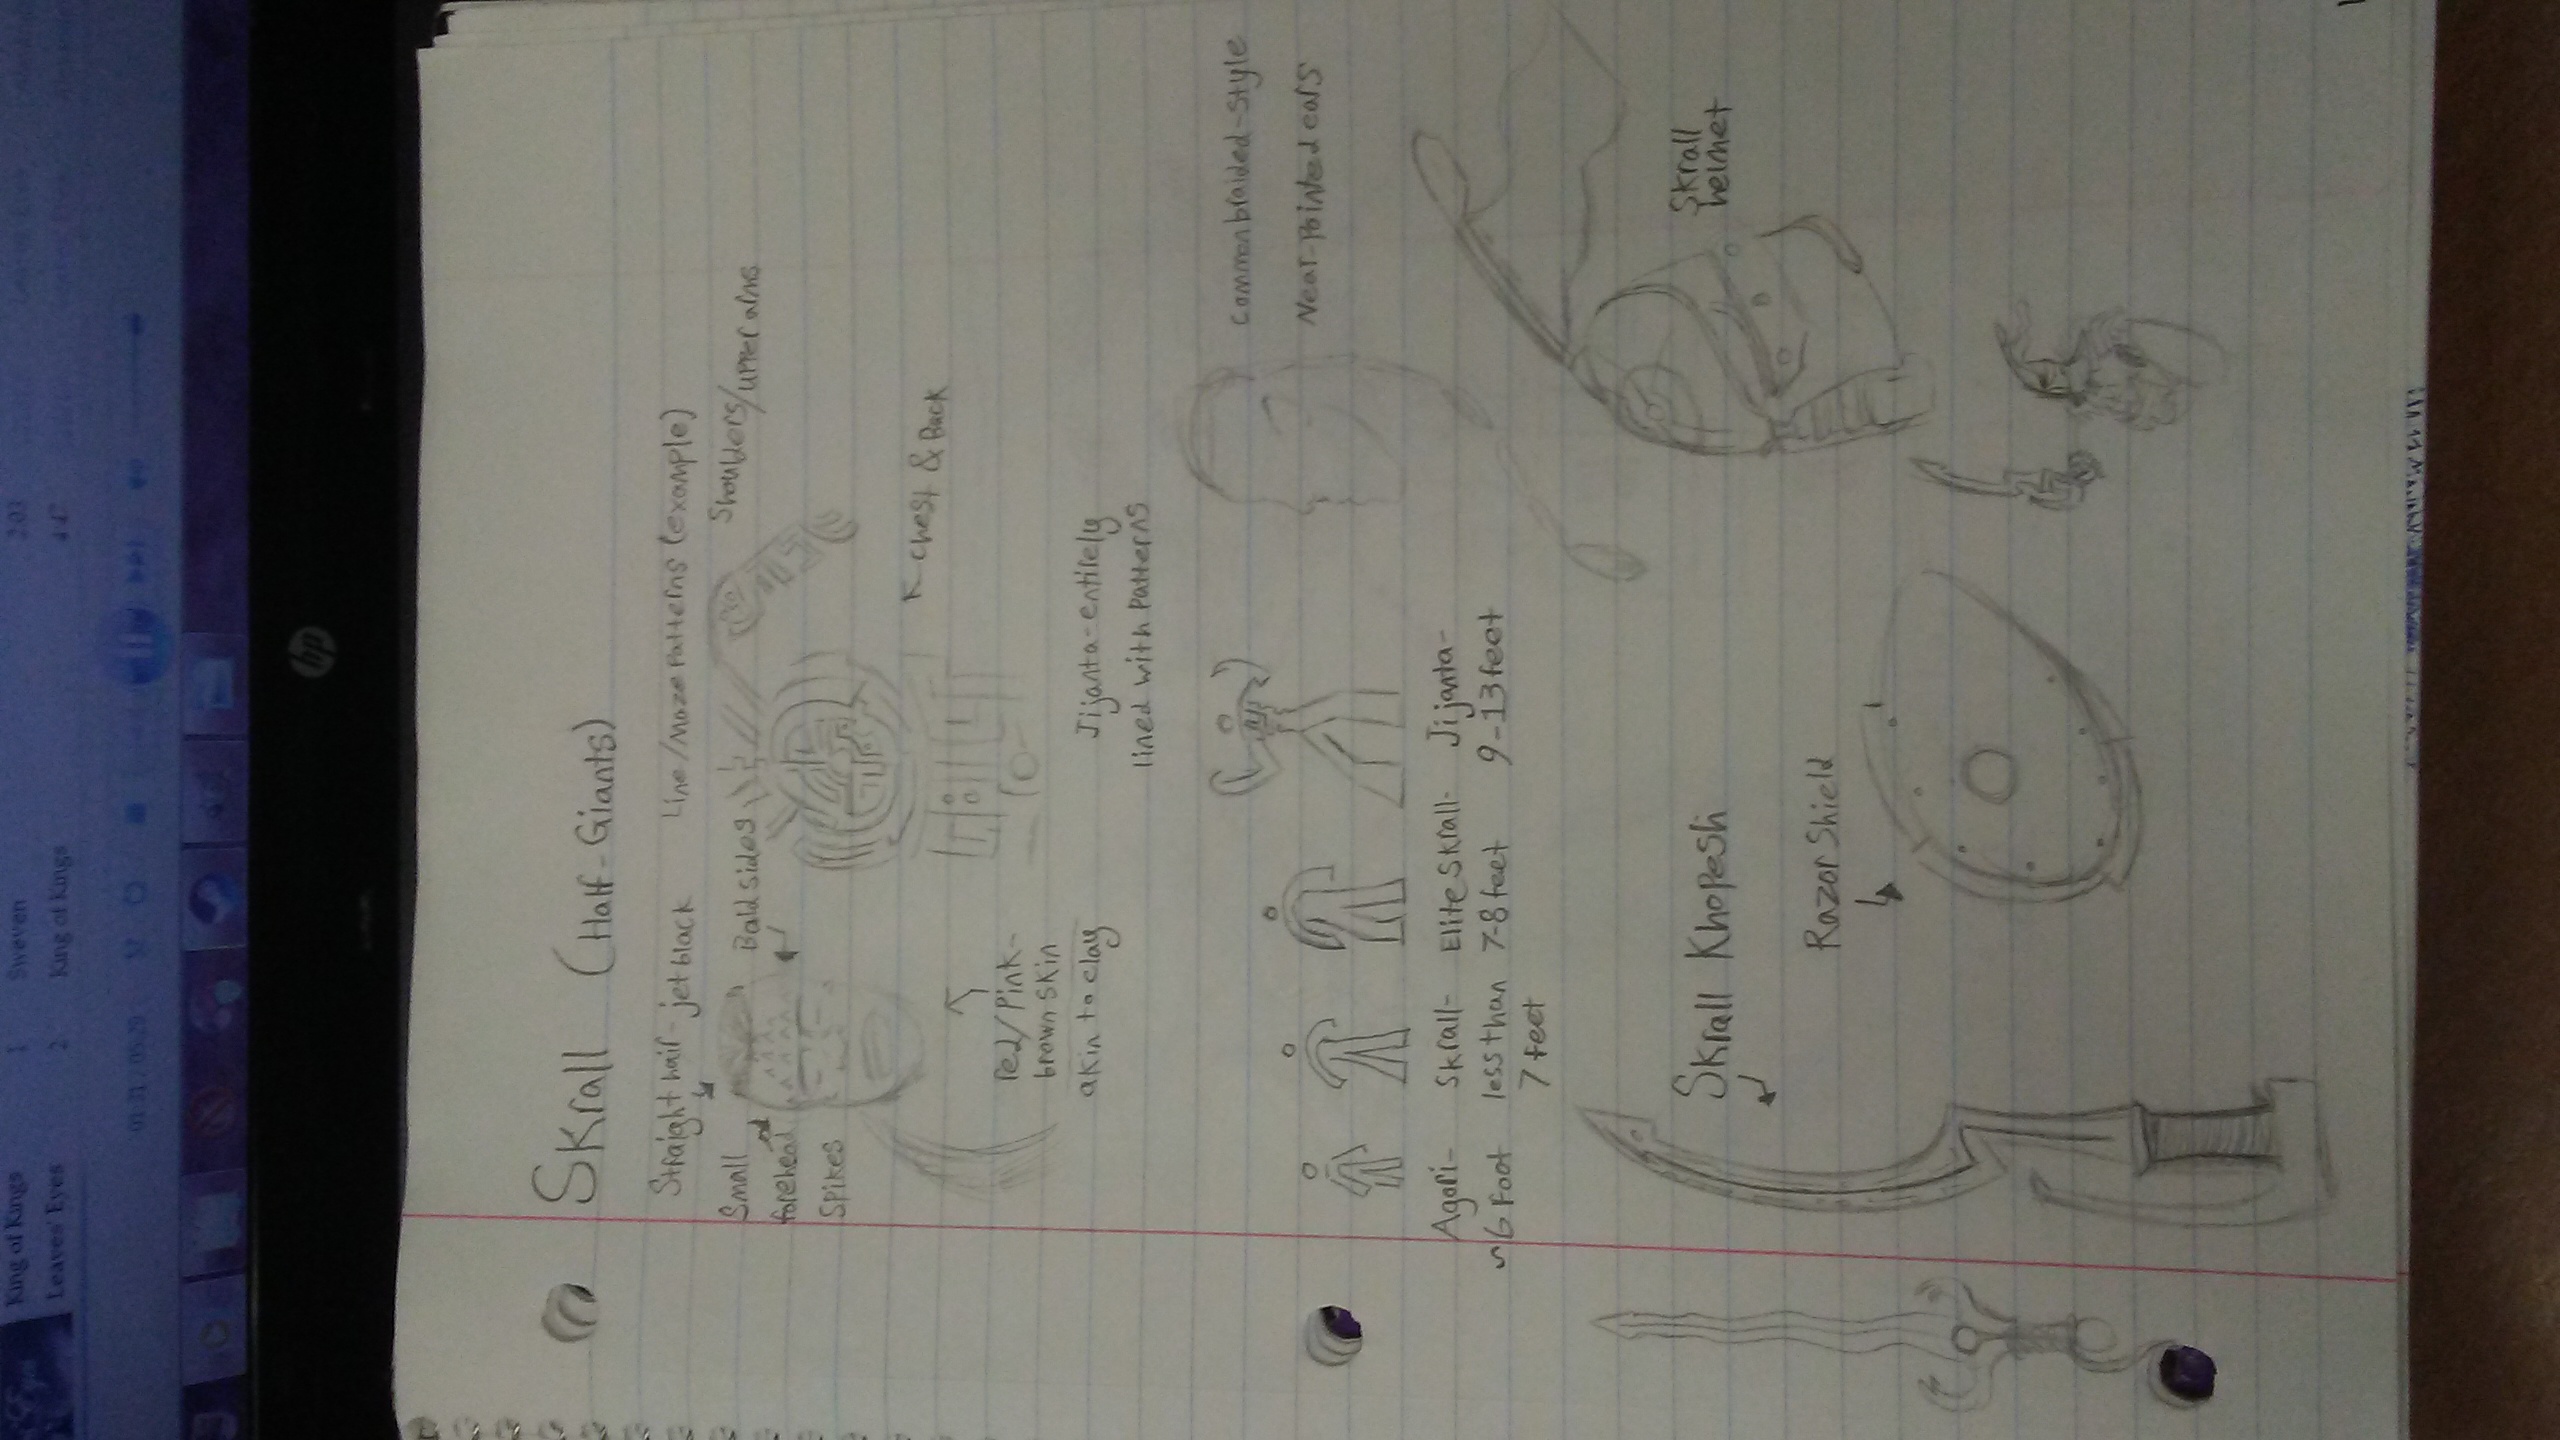 Skrall (Half-Giants)
Straight hair - jet black
Line/Maze Patterns (example)
Small
forehead
Spikes
Bald sides
Shoulders/upper arms
Chest & Back
Red/Pink-
brown skin
akin to clay
Jijanta-entirely
lined with Patterns
common braided-style
Near-Pointed ears
Agori-
~6 foot
Skrall-
less than
7 feet
Elite Skrall-
7-8 feet
Jijanta-
9-13 feet
Skrall Khopesh
Razor Shield
Skrall
helmet
hp
King of Kings
Leaves' Eyes
1 Sweven 2:03
2 King of Kings 4:47